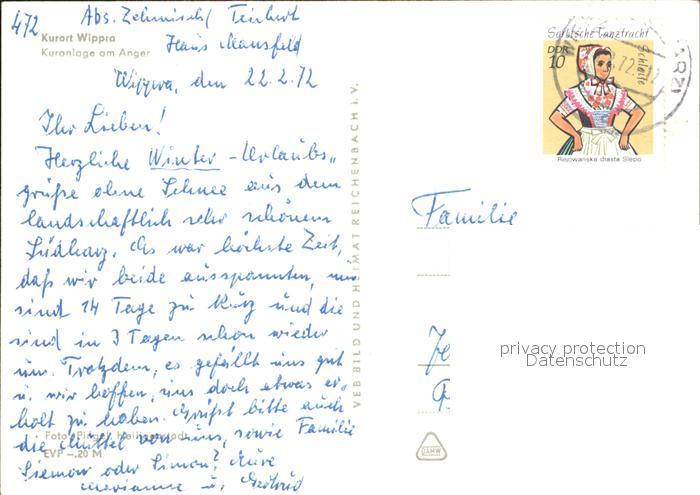 472 Abs. Zehmisch/ Teichert
Kurort Wippra
Kuranlage am Anger
Haus Mansfeld
Wippra, den 22.2.72
Ihr Lieben!
Herzliche Winter-Urlaubs-
grüße ohne Schnee aus dem
landschaftlich sehr schönem
Südharz. Es war höchste Zeit,
daß wir beide ausspannten, nur
sind 14 Tage zu kurz und die
sind in 3 Tagen schon wieder
um. Trotzdem, es gefällt uns gut
u. wir hoffen, uns doch etwas er-
holt zu haben. Grüßt bitte auch
die Muttel von uns, sowie Familie
Siemon oder Simon? Eure
Marianne u.
Foto:
EVP -.20 M
VEB BILD UND HEIMAT REICHENBACH I. V.
Sorbische Tanztracht
DDR
10
Schleife
Rejowanska drasta Slepo
Familie
privacy protection
Datenschutz